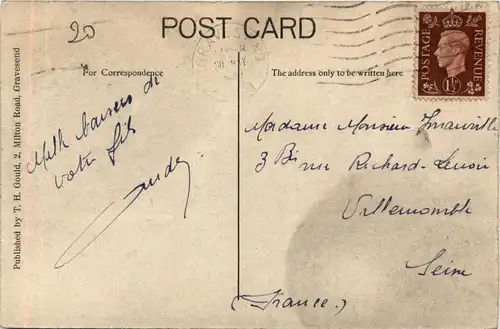 20
POST CARD
For Correspondence
The address only to be written here
POSTAGE
REVENUE
1½
Published by T. H. Gould, 2, Milton Road, Gravesend
Mille baisers de
votre fils
Madame Monsieur
3 Bis rue Richard-Lenoir
Villemomble
Seine
(France.)